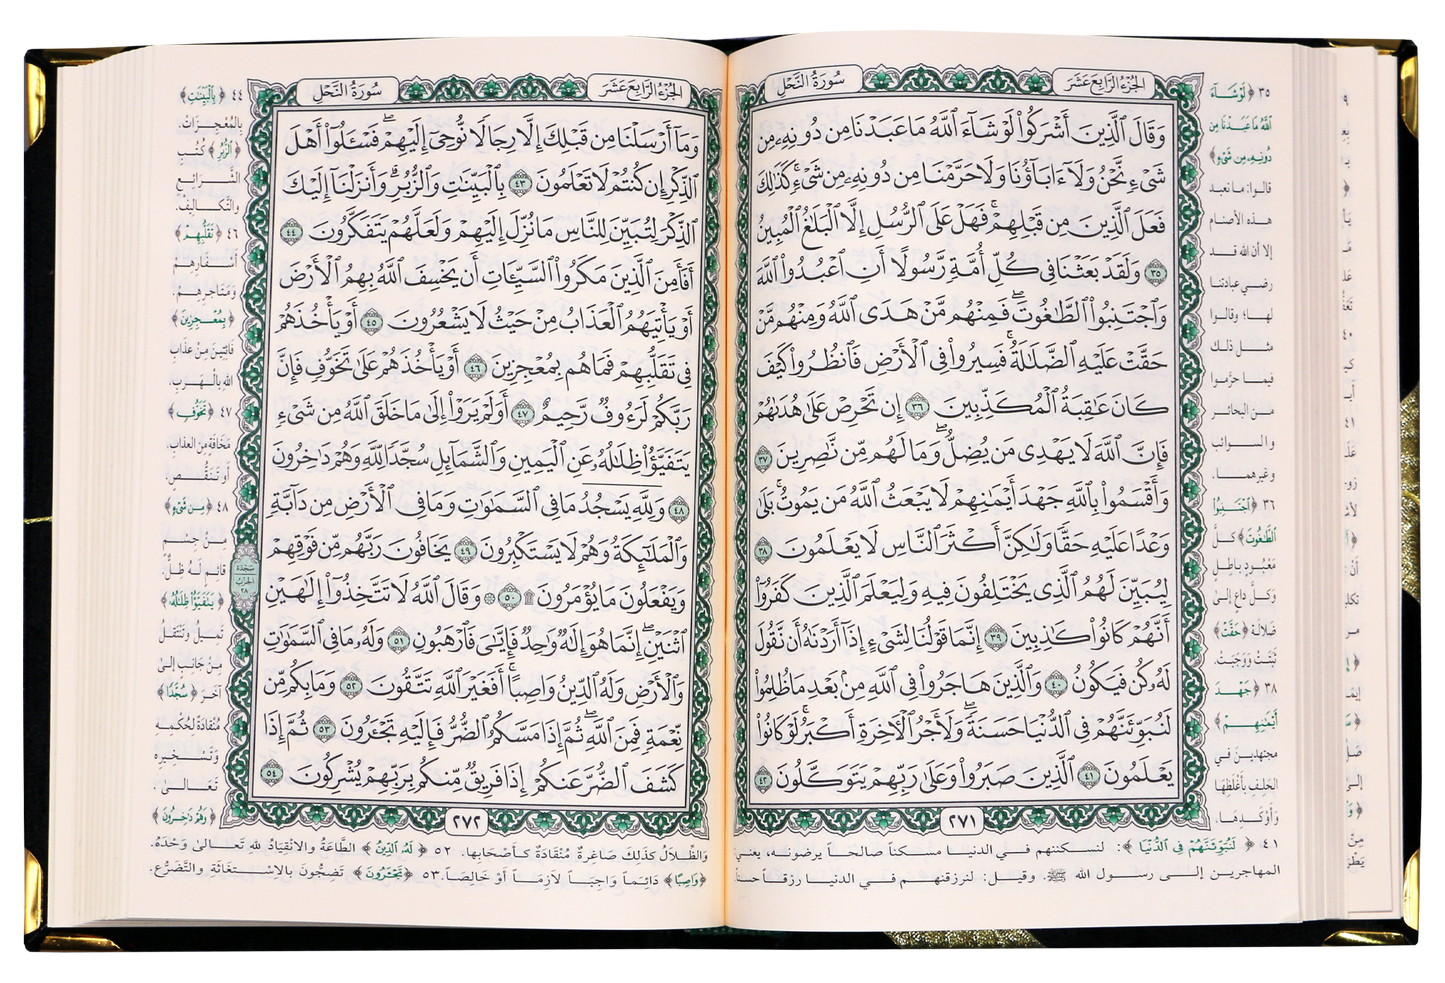 الجُزْءُ الرَّابِعَ عَشَرَ
سُورَةُ النَّحْلِ
وَقَالَ ٱلَّذِينَ أَشْرَكُوا۟ لَوْ شَآءَ ٱللَّهُ مَا عَبَدْنَا مِن دُونِهِۦ مِن
شَىْءٍ نَّحْنُ وَلَآ ءَابَآؤُنَا وَلَا حَرَّمْنَا مِن دُونِهِۦ مِن شَىْءٍ ۚ كَذَٰلِكَ
فَعَلَ ٱلَّذِينَ مِن قَبْلِهِمْ ۚ فَهَلْ عَلَى ٱلرُّسُلِ إِلَّا ٱلْبَلَٰغُ ٱلْمُبِينُ
٣٥ وَلَقَدْ بَعَثْنَا فِى كُلِّ أُمَّةٍ رَّسُولًا أَنِ ٱعْبُدُوا۟ ٱللَّهَ
وَٱجْتَنِبُوا۟ ٱلطَّٰغُوتَ ۖ فَمِنْهُم مَّنْ هَدَى ٱللَّهُ وَمِنْهُم مَّنْ
حَقَّتْ عَلَيْهِ ٱلضَّلَٰلَةُ ۚ فَسِيرُوا۟ فِى ٱلْأَرْضِ فَٱنظُرُوا۟ كَيْفَ
كَانَ عَٰقِبَةُ ٱلْمُكَذِّبِينَ ٣٦ إِن تَحْرِصْ عَلَىٰ هُدَىٰهُمْ
فَإِنَّ ٱللَّهَ لَا يَهْدِى مَن يُضِلُّ ۖ وَمَا لَهُم مِّن نَّٰصِرِينَ ٣٧
وَأَقْسَمُوا۟ بِٱللَّهِ جَهْدَ أَيْمَٰنِهِمْ ۙ لَا يَبْعَثُ ٱللَّهُ مَن يَمُوتُ ۚ بَلَىٰ
وَعْدًا عَلَيْهِ حَقًّا وَلَٰكِنَّ أَكْثَرَ ٱلنَّاسِ لَا يَعْلَمُونَ ٣٨
لِيُبَيِّنَ لَهُمُ ٱلَّذِى يَخْتَلِفُونَ فِيهِ وَلِيَعْلَمَ ٱلَّذِينَ كَفَرُوٓا۟
أَنَّهُمْ كَانُوا۟ كَٰذِبِينَ ٣٩ إِنَّمَا قَوْلُنَا لِشَىْءٍ إِذَآ أَرَدْنَٰهُ أَن نَّقُولَ
لَهُۥ كُن فَيَكُونُ ٤٠ وَٱلَّذِينَ هَاجَرُوا۟ فِى ٱللَّهِ مِنۢ بَعْدِ مَا ظُلِمُوا۟
لَنُبَوِّئَنَّهُمْ فِى ٱلدُّنْيَا حَسَنَةً ۖ وَلَأَجْرُ ٱلْءَاخِرَةِ أَكْبَرُ ۚ لَوْ كَانُوا۟
يَعْلَمُونَ ٤١ ٱلَّذِينَ صَبَرُوا۟ وَعَلَىٰ رَبِّهِمْ يَتَوَكَّلُونَ ٤٢
٢٧١
٣٥ ﴿لَوْ شَآءَ
ٱللَّهُ مَا عَبَدْنَا مِن
دُونِهِۦ مِن شَىْءٍ﴾
قالوا: ما نعبد
هذه الأصنام
إلا أن الله قد
رضي عبادتنا
لها؛ وقالوا
مثل ذلك
فيما حرَّموا
من البحائر
والسوائب
وغيرهما.
٣٦ ﴿ٱجْتَنِبُوا۟
ٱلطَّٰغُوتَ﴾ كلَّ
معبُودٍ باطِلٍ
وكلَّ داعٍ إلى
ضلالة ﴿حَقَّتْ﴾
ثَبَتَتْ وَوَجَبَتْ.
٣٨ ﴿جَهْدَ
أَيْمَٰنِهِمْ﴾
مجتهدين في
الحَلِفِ بأَغْلَظِهَا
وأَوْكَدِهَا.
٤١ ﴿لَنُبَوِّئَنَّهُمْ فِى ٱلدُّنْيَا﴾: لنسكننهم في الدنيا مسكناً صالحاً يرضونه، يعني
المهاجرين إلى رسول الله ﷺ. وقيل: لنرزقنهم في الدنيا رزقاً حسناً
الجُزْءُ الرَّابِعَ عَشَرَ
سُورَةُ النَّحْلِ
وَمَآ أَرْسَلْنَا مِن قَبْلِكَ إِلَّا رِجَالًا نُّوحِىٓ إِلَيْهِمْ ۖ فَسْـَٔلُوٓا۟ أَهْلَ
ٱلذِّكْرِ إِن كُنتُمْ لَا تَعْلَمُونَ ٤٣ بِٱلْبَيِّنَٰتِ وَٱلزُّبُرِ ۗ وَأَنزَلْنَآ إِلَيْكَ
ٱلذِّكْرَ لِتُبَيِّنَ لِلنَّاسِ مَا نُزِّلَ إِلَيْهِمْ وَلَعَلَّهُمْ يَتَفَكَّرُونَ ٤٤
أَفَأَمِنَ ٱلَّذِينَ مَكَرُوا۟ ٱلسَّيِّـَٔاتِ أَن يَخْسِفَ ٱللَّهُ بِهِمُ ٱلْأَرْضَ
أَوْ يَأْتِيَهُمُ ٱلْعَذَابُ مِنْ حَيْثُ لَا يَشْعُرُونَ ٤٥ أَوْ يَأْخُذَهُمْ
فِى تَقَلُّبِهِمْ فَمَا هُم بِمُعْجِزِينَ ٤٦ أَوْ يَأْخُذَهُمْ عَلَىٰ تَخَوُّفٍ فَإِنَّ
رَبَّكُمْ لَرَءُوفٌ رَّحِيمٌ ٤٧ أَوَلَمْ يَرَوْا۟ إِلَىٰ مَا خَلَقَ ٱللَّهُ مِن شَىْءٍ
يَتَفَيَّؤُا۟ ظِلَٰلُهُۥ عَنِ ٱلْيَمِينِ وَٱلشَّمَآئِلِ سُجَّدًا لِّلَّهِ وَهُمْ دَٰخِرُونَ
٤٨ وَلِلَّهِ يَسْجُدُ مَا فِى ٱلسَّمَٰوَٰتِ وَمَا فِى ٱلْأَرْضِ مِن دَآبَّةٍ
وَٱلْمَلَٰٓئِكَةُ وَهُمْ لَا يَسْتَكْبِرُونَ ٤٩ يَخَافُونَ رَبَّهُم مِّن فَوْقِهِمْ
وَيَفْعَلُونَ مَا يُؤْمَرُونَ ۩ ٥٠ ۞ وَقَالَ ٱللَّهُ لَا تَتَّخِذُوٓا۟ إِلَٰهَيْنِ
ٱثْنَيْنِ ۖ إِنَّمَا هُوَ إِلَٰهٌ وَٰحِدٌ ۖ فَإِيَّٰىَ فَٱرْهَبُونِ ٥١ وَلَهُۥ مَا فِى ٱلسَّمَٰوَٰتِ
وَٱلْأَرْضِ وَلَهُ ٱلدِّينُ وَاصِبًا ۚ أَفَغَيْرَ ٱللَّهِ تَتَّقُونَ ٥٢ وَمَا بِكُم مِّن
نِّعْمَةٍ فَمِنَ ٱللَّهِ ۖ ثُمَّ إِذَا مَسَّكُمُ ٱلضُّرُّ فَإِلَيْهِ تَجْـَٔرُونَ ٥٣ ثُمَّ إِذَا
كَشَفَ ٱلضُّرَّ عَنكُمْ إِذَا فَرِيقٌ مِّنكُم بِرَبِّهِمْ يُشْرِكُونَ ٥٤
٢٧٢
٤٤ ﴿بِٱلْبَيِّنَٰتِ﴾
بِالمُعْجِزَاتِ.
﴿ٱلزُّبُرِ﴾ كُتُبِ
الشَّرَائِعِ
والتَّكَالِيفِ.
٤٦ ﴿تَقَلُّبِهِمْ﴾
أَسْفَارِهِمْ
وَمَتَاجِرِهِمْ.
﴿بِمُعْجِزِينَ﴾
فَائِتِينَ مِنْ عَذَابِ
اللهِ بِالْهَرَبِ.
٤٧ ﴿تَخَوُّفٍ﴾
مَخَافَةٍ مِنَ العذابِ.
أَوْ تَنَقُّصٍ.
٤٨ ﴿مِن شَىْءٍ﴾
مِنْ جِسْمٍ
قائمٍ لَهُ ظِلٌّ.
﴿يَتَفَيَّؤُا۟ ظِلَٰلُهُۥ﴾
تَمِيلُ وَتَنْتَقِلُ
مِنْ جَانبٍ إلى
آخَرَ ﴿سُجَّدًا﴾
مُنْقَادَةً لِحُكْمِهِ
وَتَسْخِيرِهِ
تَعَالَى.
﴿وَهُمْ دَٰخِرُونَ﴾
سَجْدَة
٢٨
وَالظِّلَالُ كَذَلِكَ صَاغِرةٌ مُنْقَادَةٌ كَأَصْحَابِهَا. ٥٢ ﴿لَهُ ٱلدِّينُ﴾ الطَّاعَةُ والانْقِيَادُ للهِ تَعالى وَحْدَهُ.
﴿وَاصِبًا﴾ دَائِماً وَاجِباً لَازِماً أَوْ خَالِصاً. ٥٣ ﴿تَجْـَٔرُونَ﴾ تَضِجُّونَ بالاسْتِغَاثَةِ والتَّضَرُّعِ.